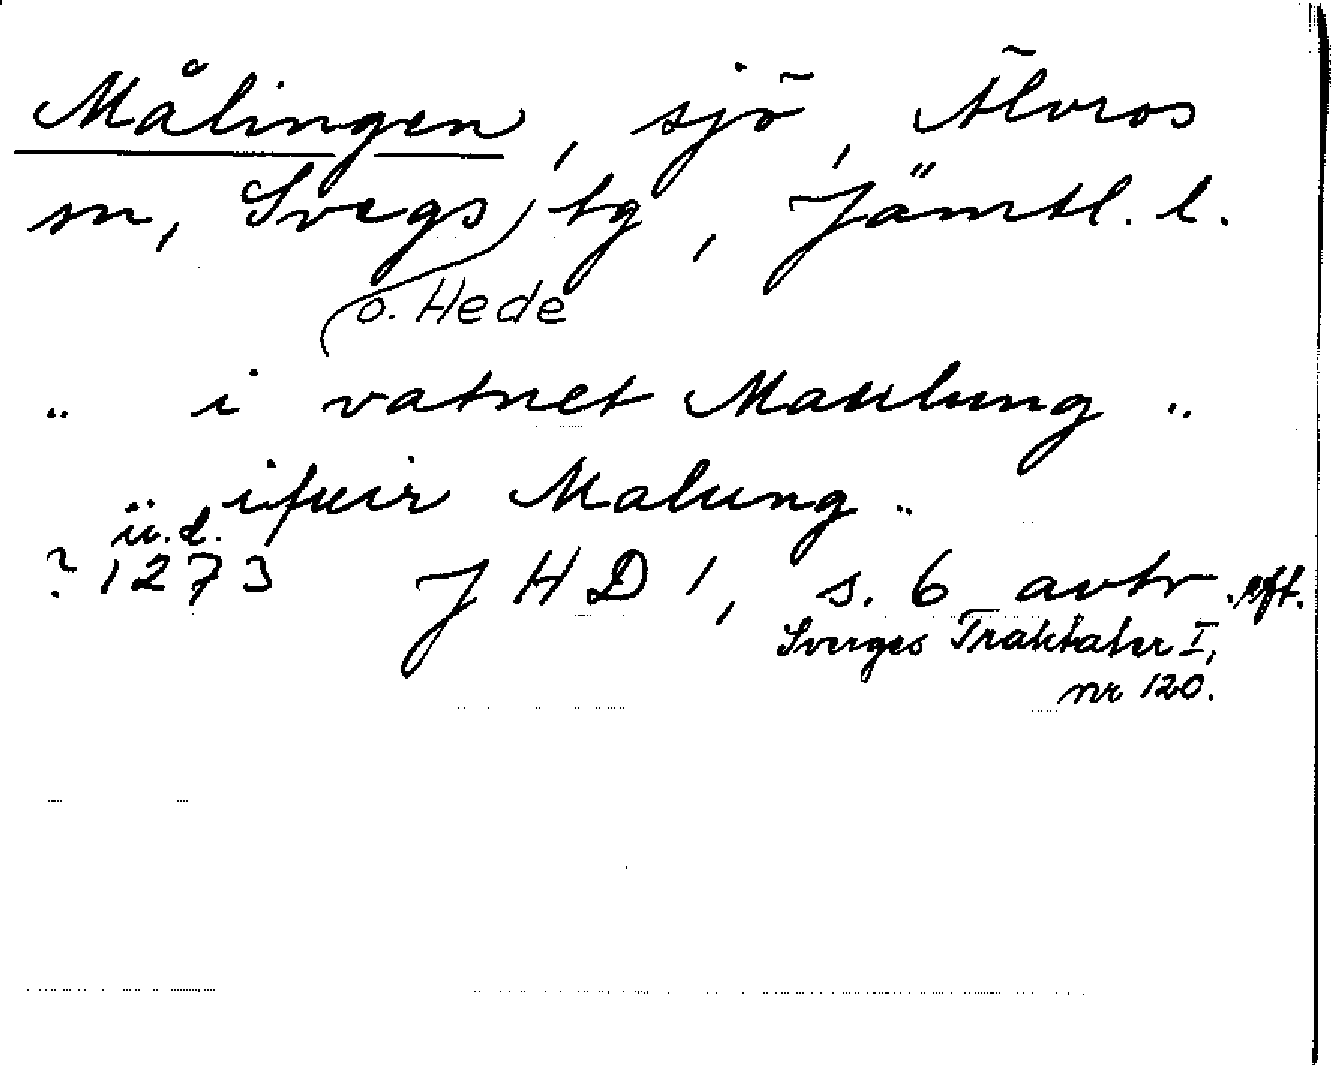 Målingen, sjö, Älvros
sn, Svegs tg, Jämtl. l.
o. Hede
" i vatnet Maulung "
" ifuir Malung "
u.d.
? 1273 JHD 1, s. 6 avtr. eft.
Sverges Traktater I,
nr 120.